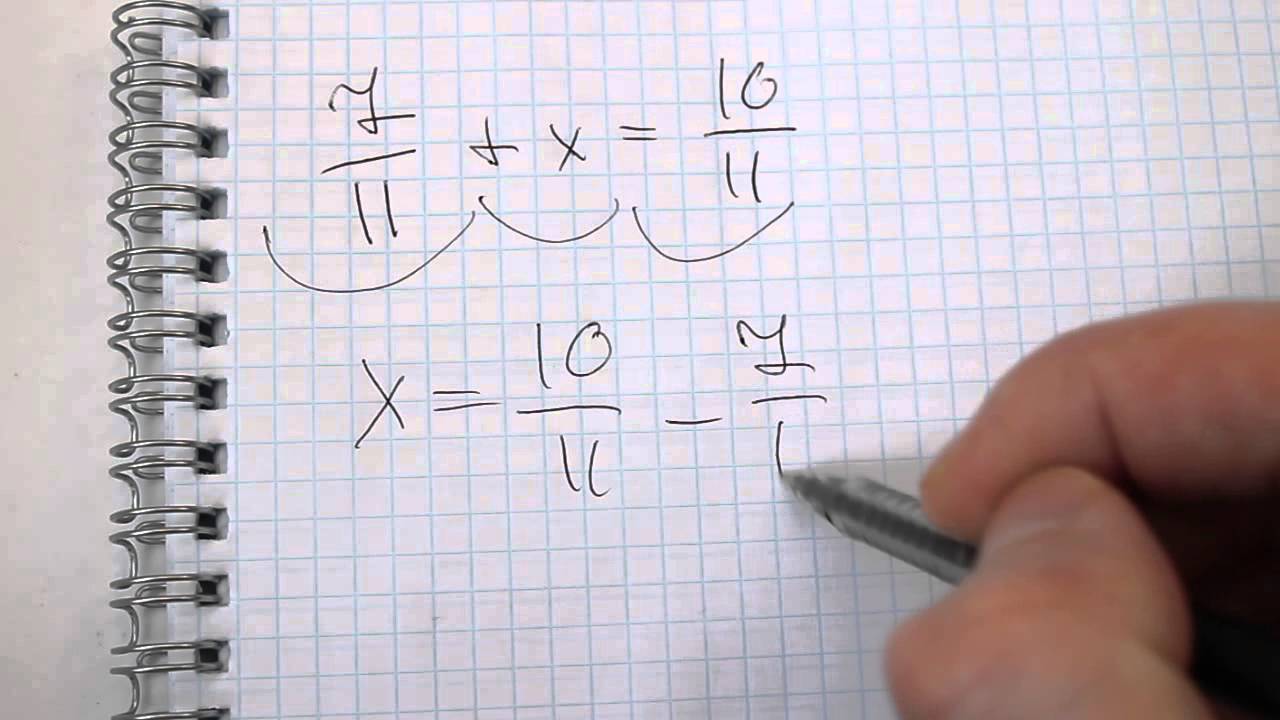 7/11 + x = 10/11
x = 10/11 - 7/1